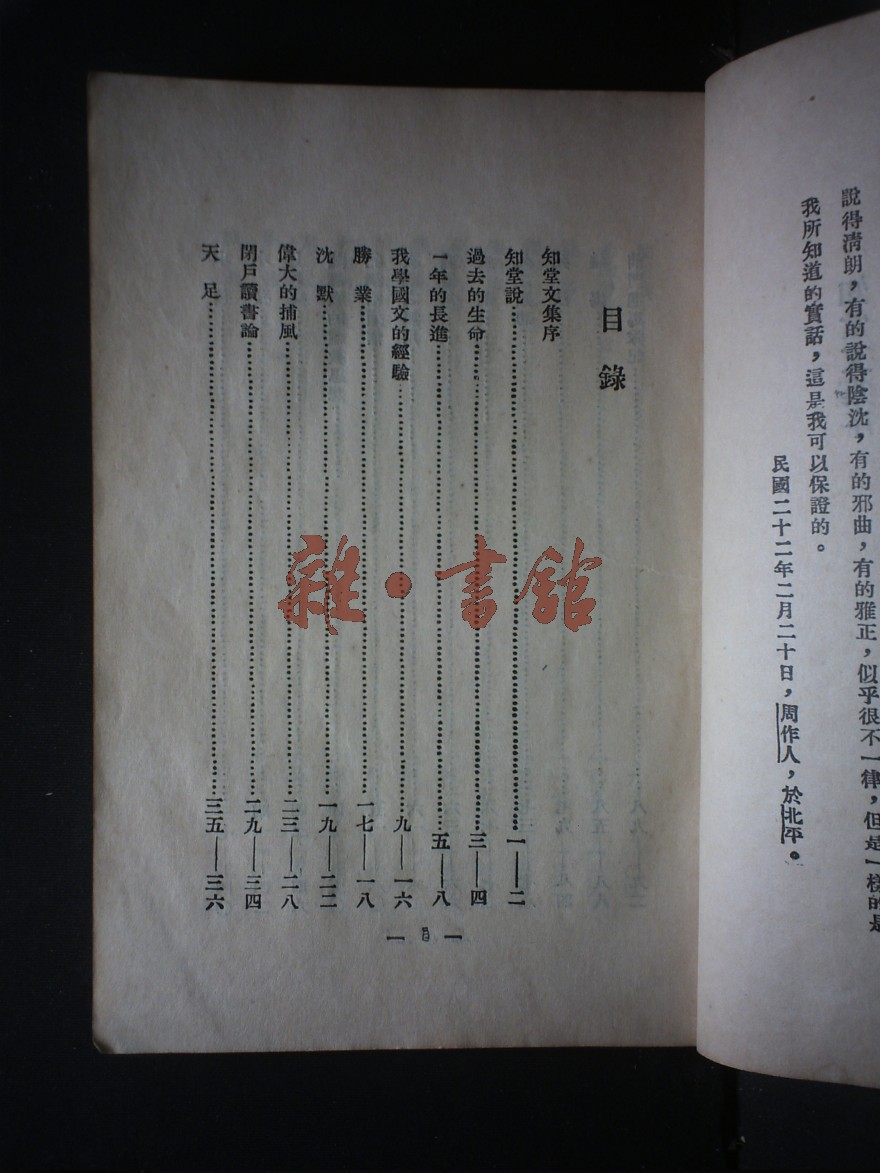 說得清朗，有的說得陰沈，有的邪曲，有的雅正，似乎很不一律，但是一樣的是
我所知道的實話，這是我可以保證的。
民國二十二年二月二十日，周作人，於北平。
目錄
知堂文集序
知堂說……一——二
過去的生命……三——四
一年的長進……五——八
我學國文的經驗……九——一六
勝業……一七——一八
沈默……一九——二二
偉大的捕風……二三——二八
閉戶讀書論……二九——三四
天足……三五——三六
雜·書館